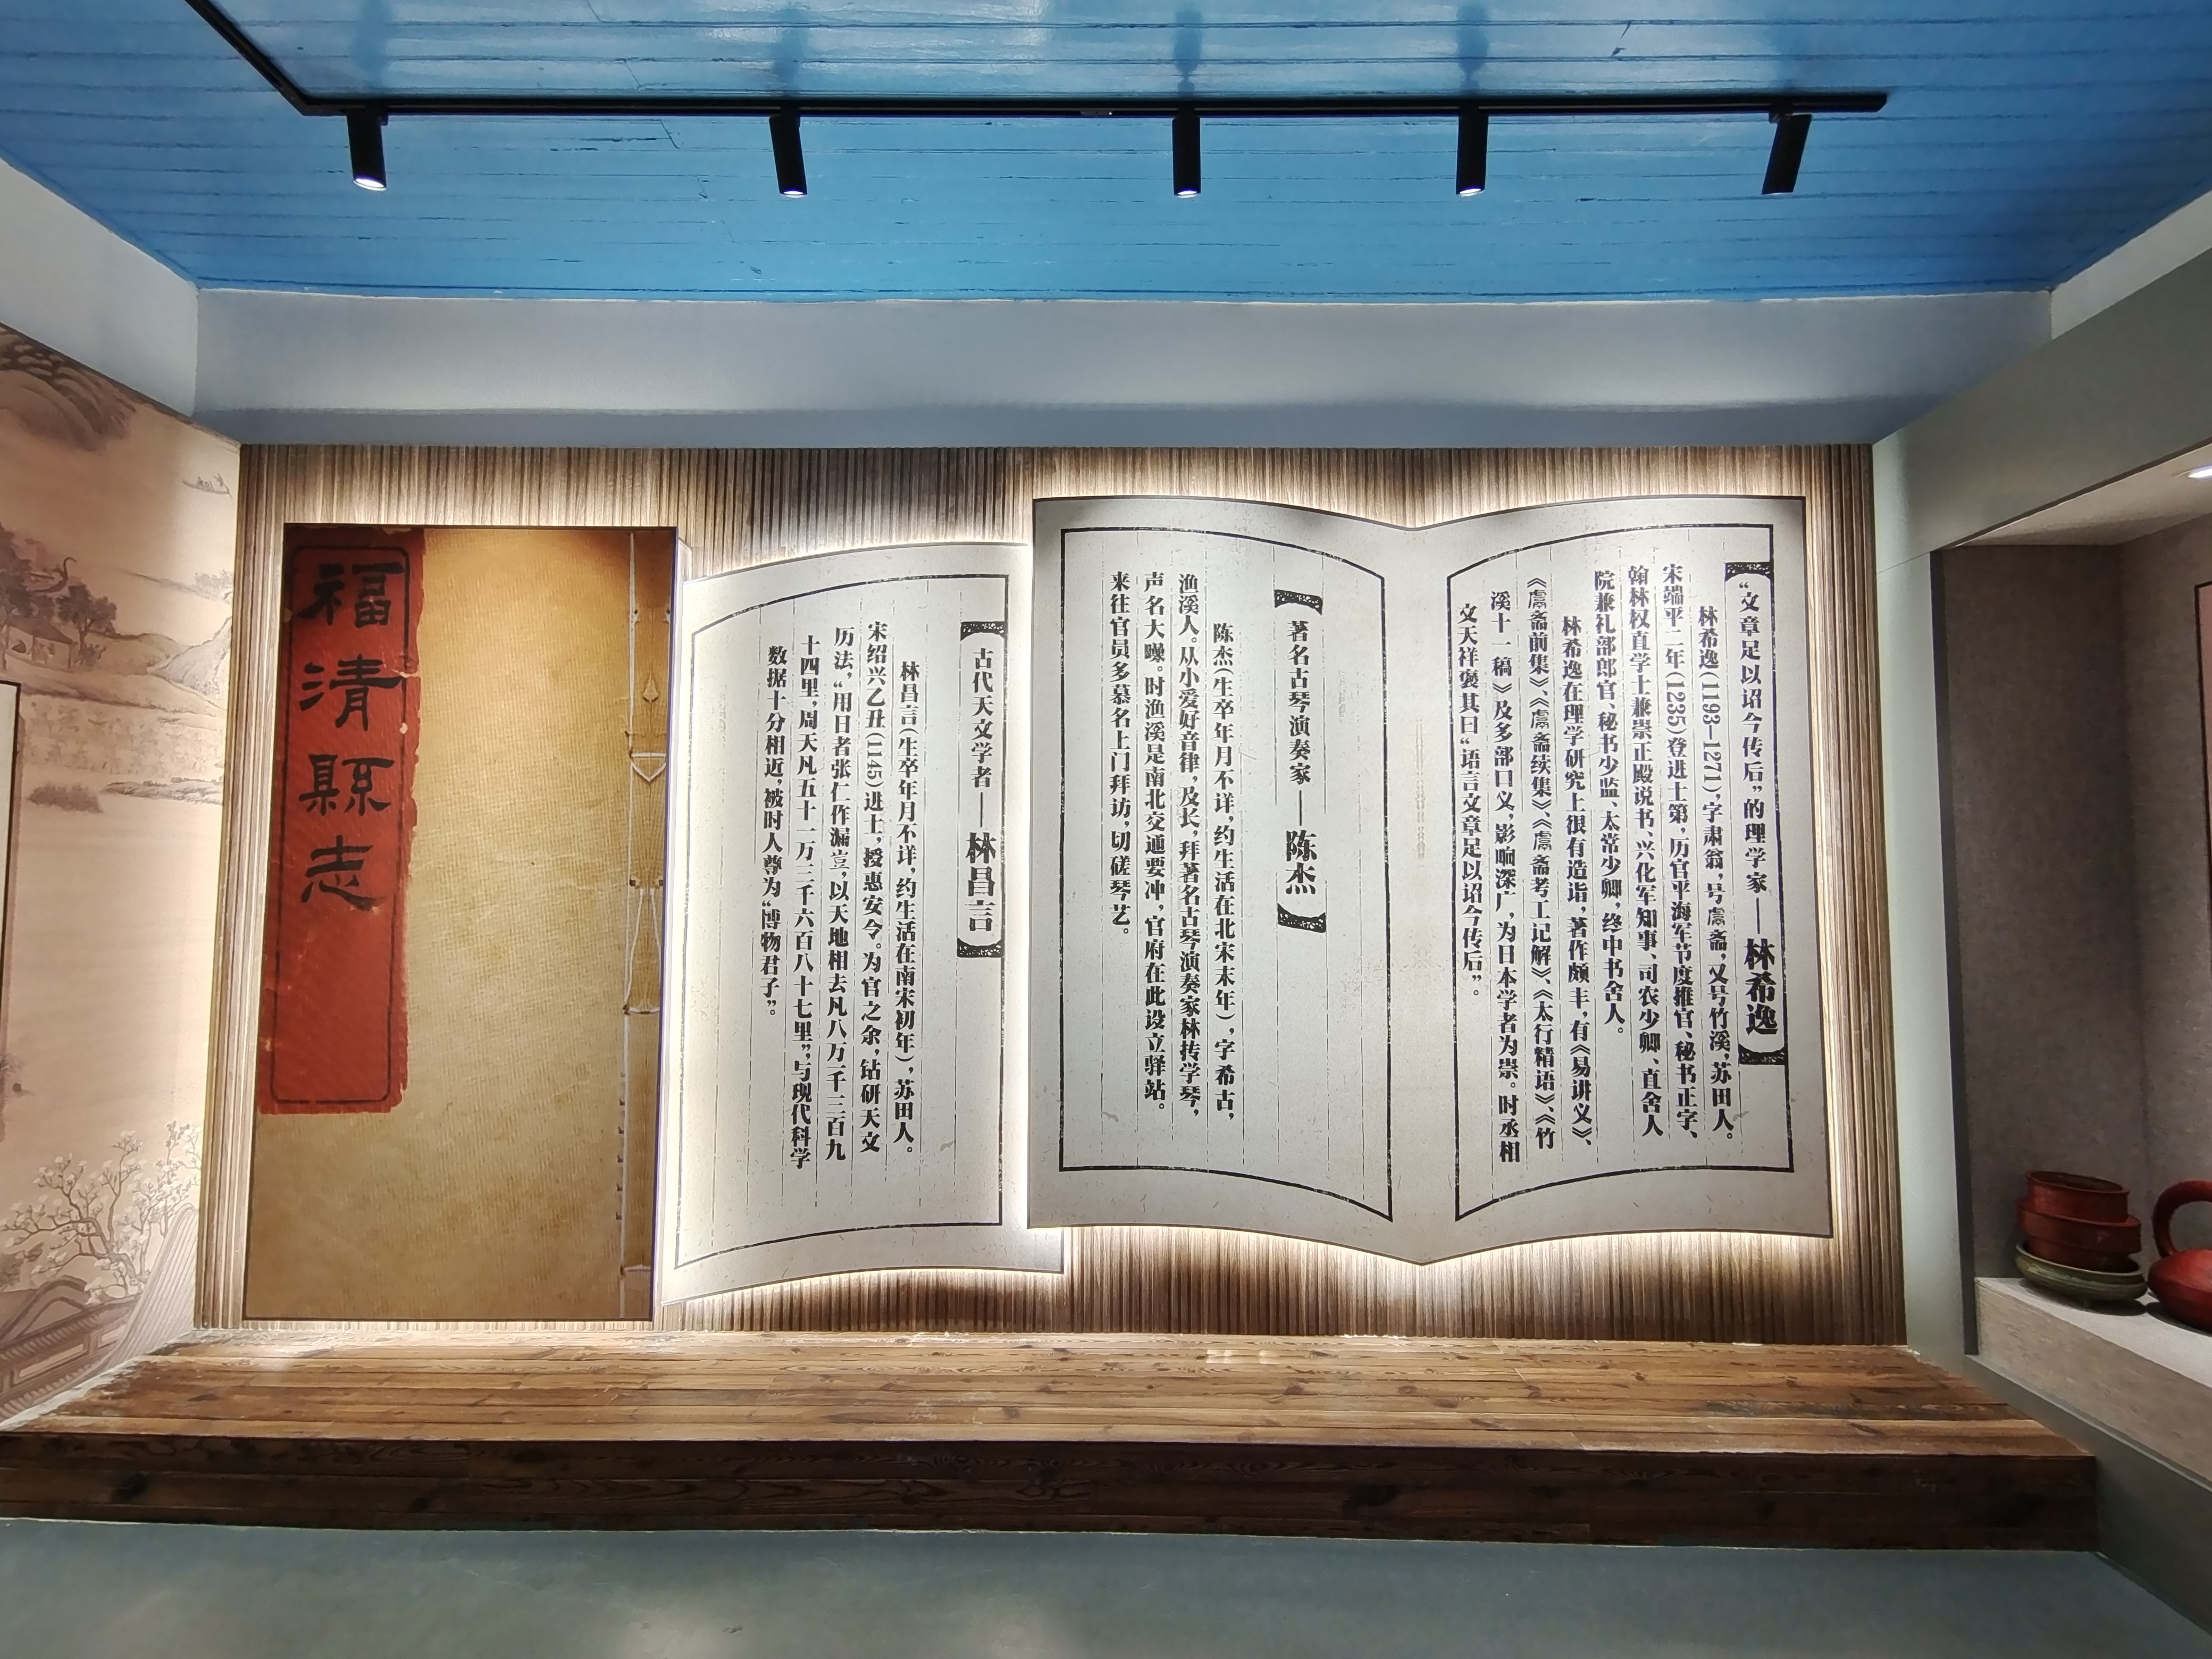 “文章足以诏今传后”的理学家——林希逸
林希逸(1193—1271),字肃翁,号鬳斋,又号竹溪,苏田人。
宋端平二年(1235)登进士第,历官平海军节度推官、秘书正字、
翰林权直学士兼崇正殿说书、兴化军知事、司农少卿、直舍人
院兼礼部郎官、秘书少监、太常少卿,终中书舍人。
林希逸在理学研究上很有造诣,著作颇丰,有《易讲义》、
《鬳斋前集》、《鬳斋续集》、《鬳斋考工记解》、《太行精语》、《竹
溪十一稿》及多部口义,影响深广,为日本学者为崇。时丞相
文天祥褒其曰“语言文章足以诏今传后”。
著名古琴演奏家——陈杰
陈杰(生卒年月不详,约生活在北宋末年),字希古,
渔溪人。从小爱好音律,及长,拜著名古琴演奏家林抟学琴,
声名大躁。时渔溪是南北交通要冲,官府在此设立驿站。
来往官员多慕名上门拜访,切磋琴艺。
古代天文学者——林昌言
林昌言(生卒年月不详,约生活在南宋初年),苏田人。
宋绍兴乙丑(1145)进士,授惠安令。为官之余,钻研天文
历法,“用日者张仁作漏壹,以天地相去凡八万千三百九
十四里,周天凡五十一万三千六百八十七里”,与现代科学
数据十分相近,被时人尊为“博物君子”。
福清縣志